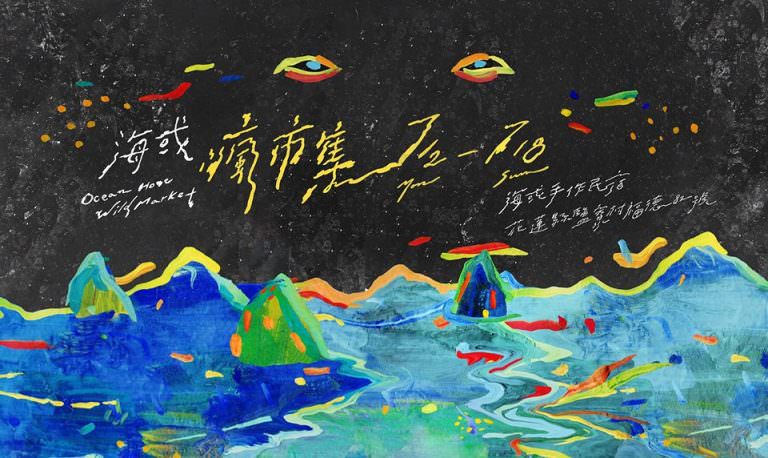 海或
瘋市集
7/2 - 7/18
Mon
Sun
Ocean Home
Wild Market
海或手作民宿
花蓮縣鹽寮村福德82號